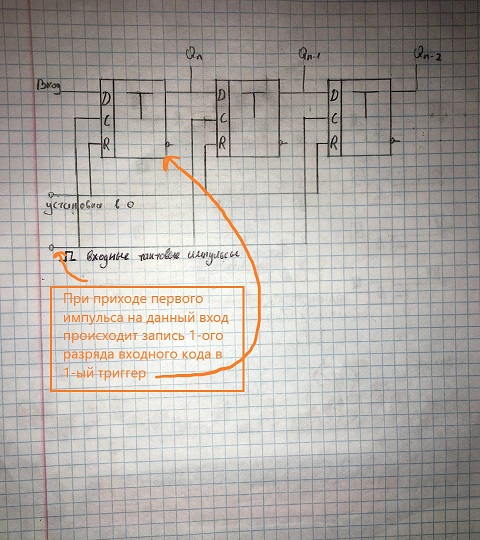 Qn Qn-1 Qn-2
Вход
D T D T D T
C C C
R R R
установка в 0
входные тактовые импульсы
При приходе первого
импульса на данный вход
происходит запись 1-ого
разряда входного кода в
1-ый триггер